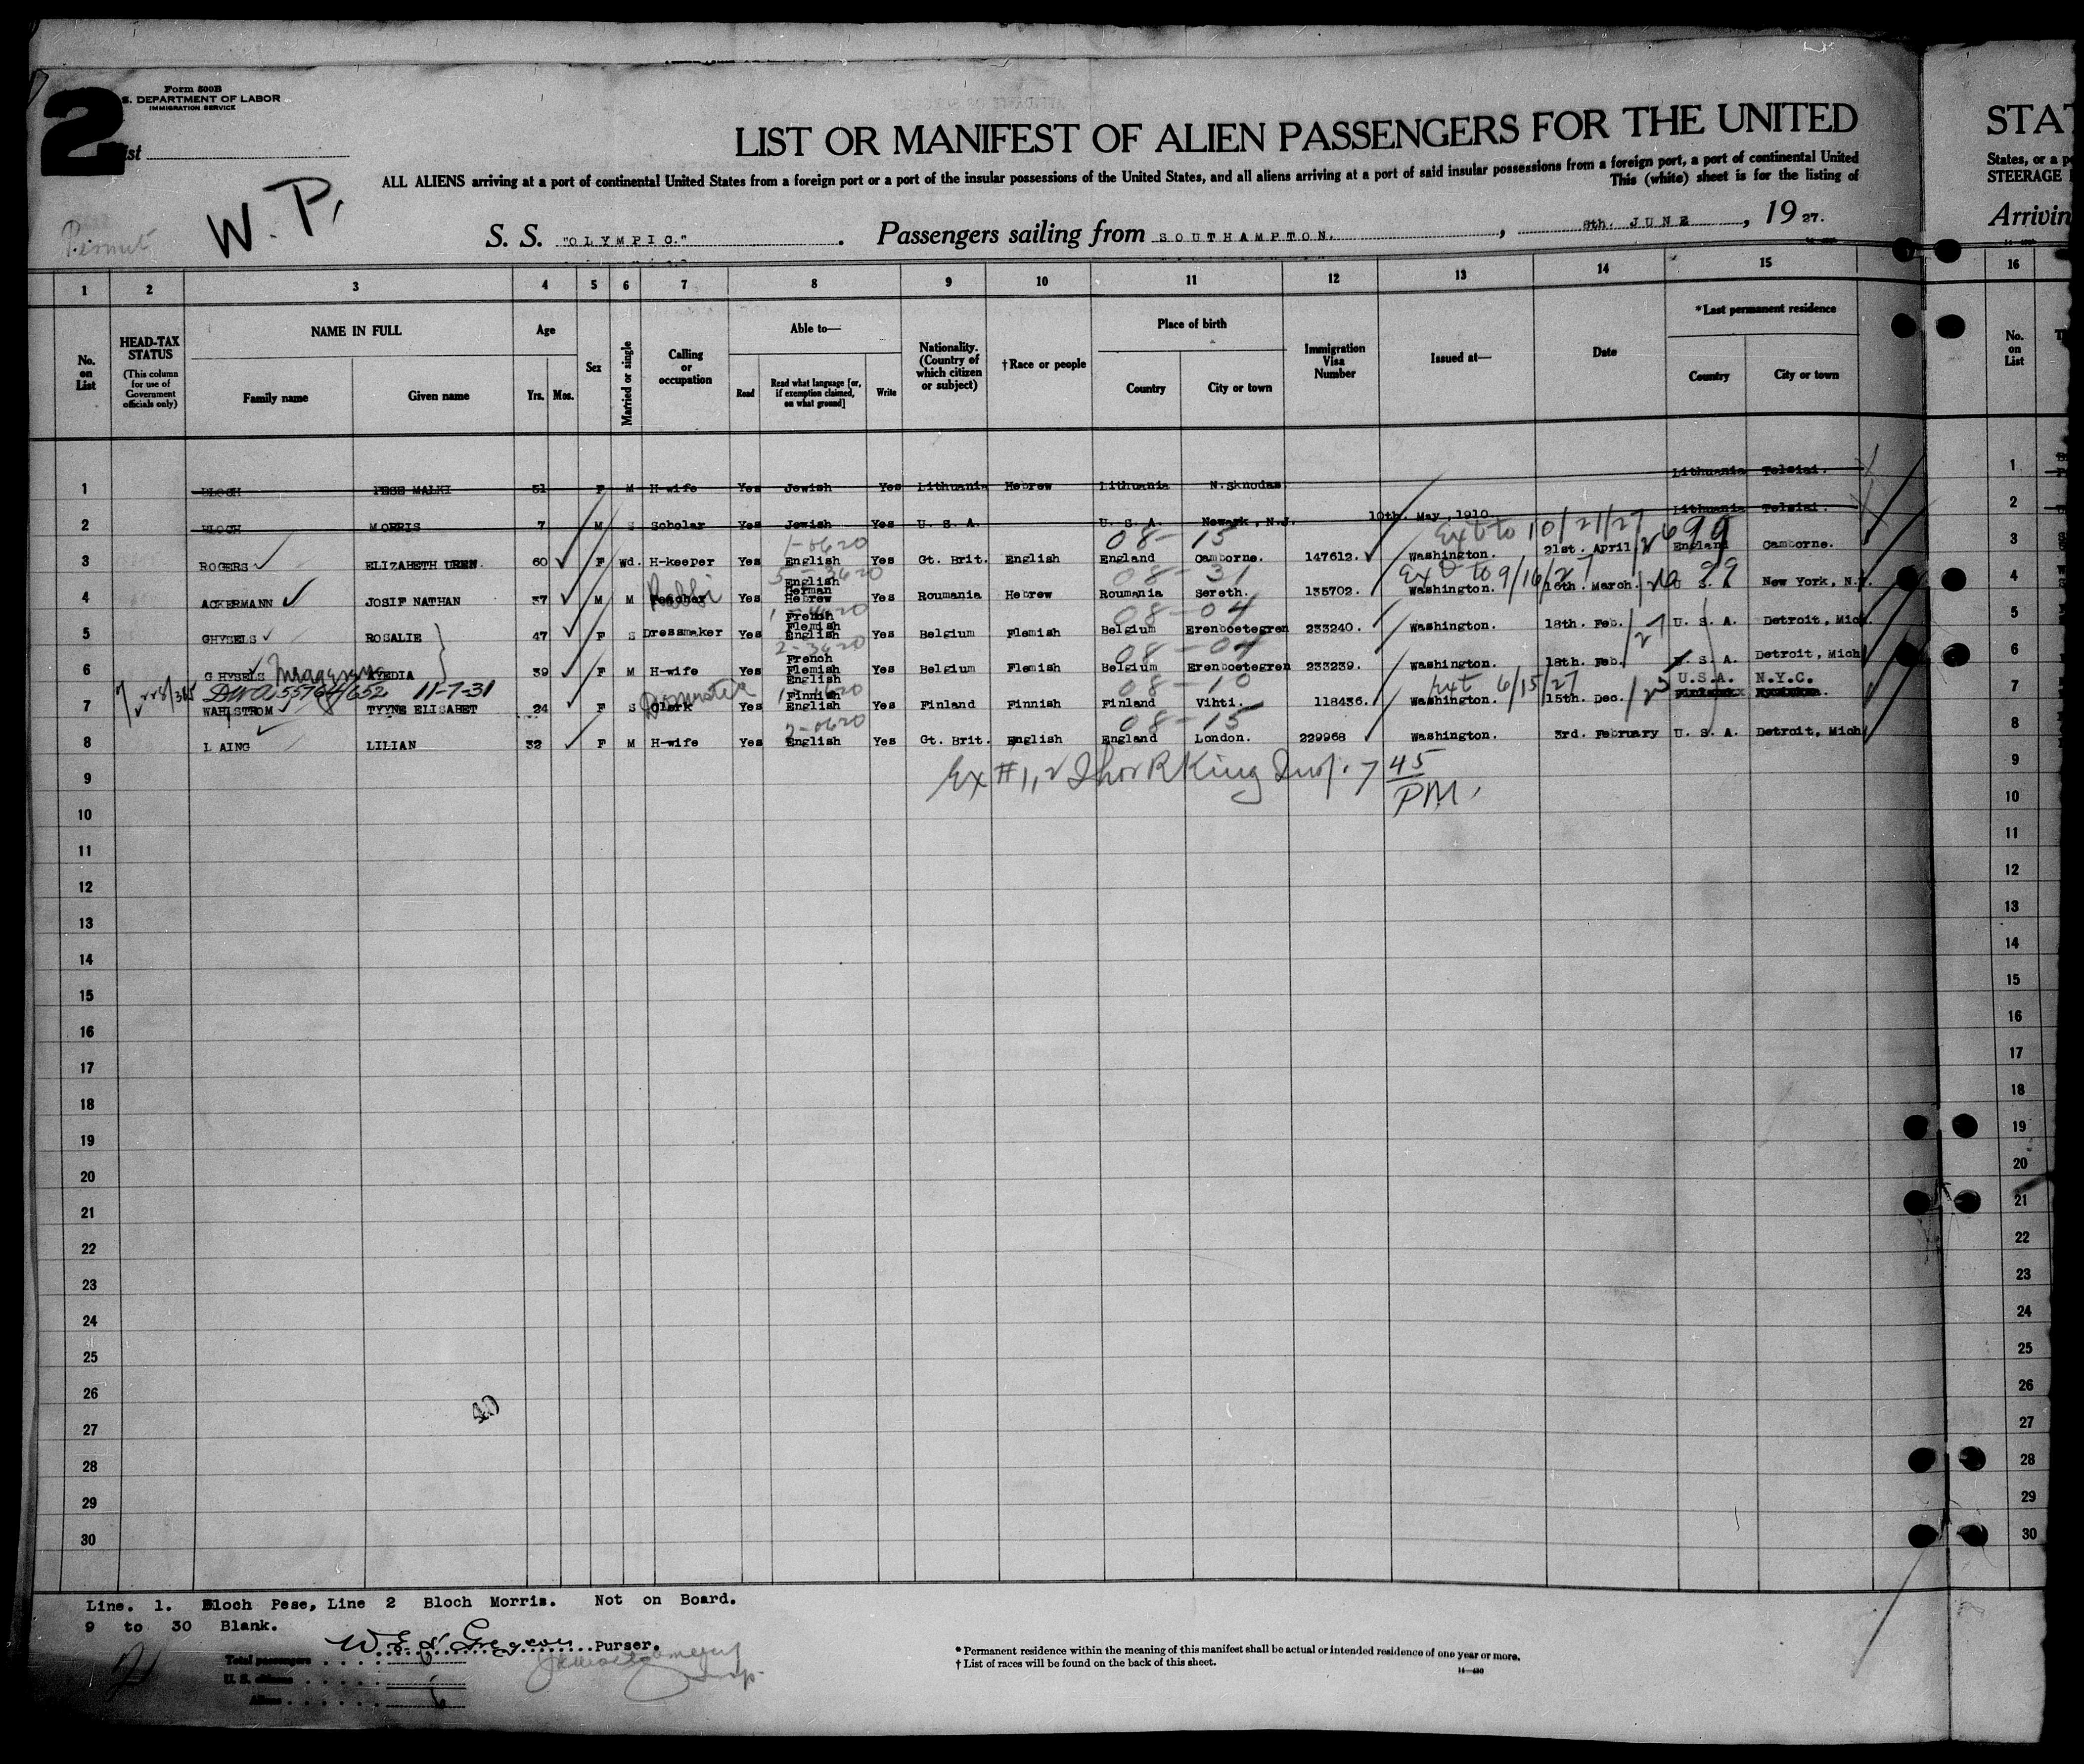 2
Form 500B
S. DEPARTMENT OF LABOR
IMMIGRATION SERVICE
LIST OR MANIFEST OF ALIEN PASSENGERS FOR THE UNITED
STAT
ALL ALIENS arriving at a port of continental United States from a foreign port or a port of the insular possessions of the United States, and all aliens arriving at a port of said insular possessions from a foreign port, a port of continental United
States, or a
This (white) sheet is for the listing of
STEERAGE
Permit
W. P.
S. S. "OLYMPIC." Passengers sailing from SOUTHAMPTON, 8th. JUNE, 19 27.
Arrivin
1 2 3 4 5 6 7 8 9 10 11 12 13 14 15 16
No. on List
HEAD-TAX STATUS (This column for use of Government officials only)
NAME IN FULL Family name Given name
Age Yrs. Mos.
Sex
Married or single
Calling or occupation
Able to— Read Read what language [or, if exemption claimed, on what ground] Write
Nationality. (Country of which citizen or subject)
†Race or people
Place of birth Country City or town
Immigration Visa Number
Issued at—
Date
*Last permanent residence Country City or town
No. on List
1 BLOCH PESE MALKI 51 F M H-wife Yes Jewish Yes Lithuania Hebrew Lithuania N.Sknodas Lithuania Telsiai. 1
2 BLOCH MORRIS 7 M S Scholar Yes Jewish Yes U. S. A. U. S. A. Newark, N.J. 10th. May, 1910 Lithuania Telsiai. 2
1-0620 08-15 Ext to 10/21/27 699
3 ROGERS ELIZABETH UREN 60 F Wd. H-keeper Yes English Yes Gt. Brit. English England Camborne. 147612. Washington. 21st. April England Camborne. 3
5-3620 08-31 Ext to 9/16/27 99
4 ACKERMANN JOSIF NATHAN 37 M M Rabbi Yes English German Hebrew Yes Roumania Hebrew Roumania Sereth. 135702. Washington. 16th. March. U S. New York, N.Y. 4
08-04
5 GHYSELS ROSALIE 47 F S Dressmaker Yes French Flemish English Yes Belgium Flemish Belgium Erenboetegren 233240. Washington. 18th. Feb. /27 U. S. A. Detroit, Mich. 5
2-3620 08-04
6 GHYSELS AVEDIA 39 F M H-wife Yes French Flemish English Yes Belgium Flemish Belgium Erenboetegren 233239. Washington. 18th. Feb. U. S. A. Detroit, Mich 6
11-7-31 08-10 Ext 6/15/27 U.S.A. N.Y.C.
7 WAHLSTROM TYYNE ELISABET 24 F S Clerk Domestic Yes Finnish English Yes Finland Finnish Finland Vihti. 118436. Washington. 15th. Dec. Finland 7
2-0620 08-15
8 LAING LILIAN 32 F M H-wife Yes English Yes Gt. Brit. English England London. 229968 Washington. 3rd. February U. S. A. Detroit, Mich 8
9 Ex #1, 2 Thos R King Insp. 7 45 PM. 9
10 10
11 11
12 12
13 13
14 14
15 15
16 16
17 17
18 18
19 19
20 20
21 21
22 22
23 23
24 24
25 25
26 26
40
27 27
28 28
29 29
30 30
Line. 1. Bloch Pese, Line 2 Bloch Morris. Not on Board.
9 to 30 Blank.
Purser.
Total passengers 6
U. S. citizens
Aliens 6
* Permanent residence within the meaning of this manifest shall be actual or intended residence of one year or more.
† List of races will be found on the back of this sheet.
14—430